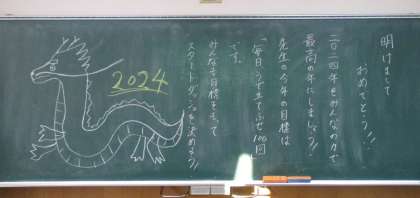 明けまして
おめでとう!!
二〇二四年をみんなの力で
最高の年にしましょう!
先生の今年の目標は
「毎日うで立てふせ100回」
です。
みんなも目標をもって
スタートダッシュを決めよう!
2024